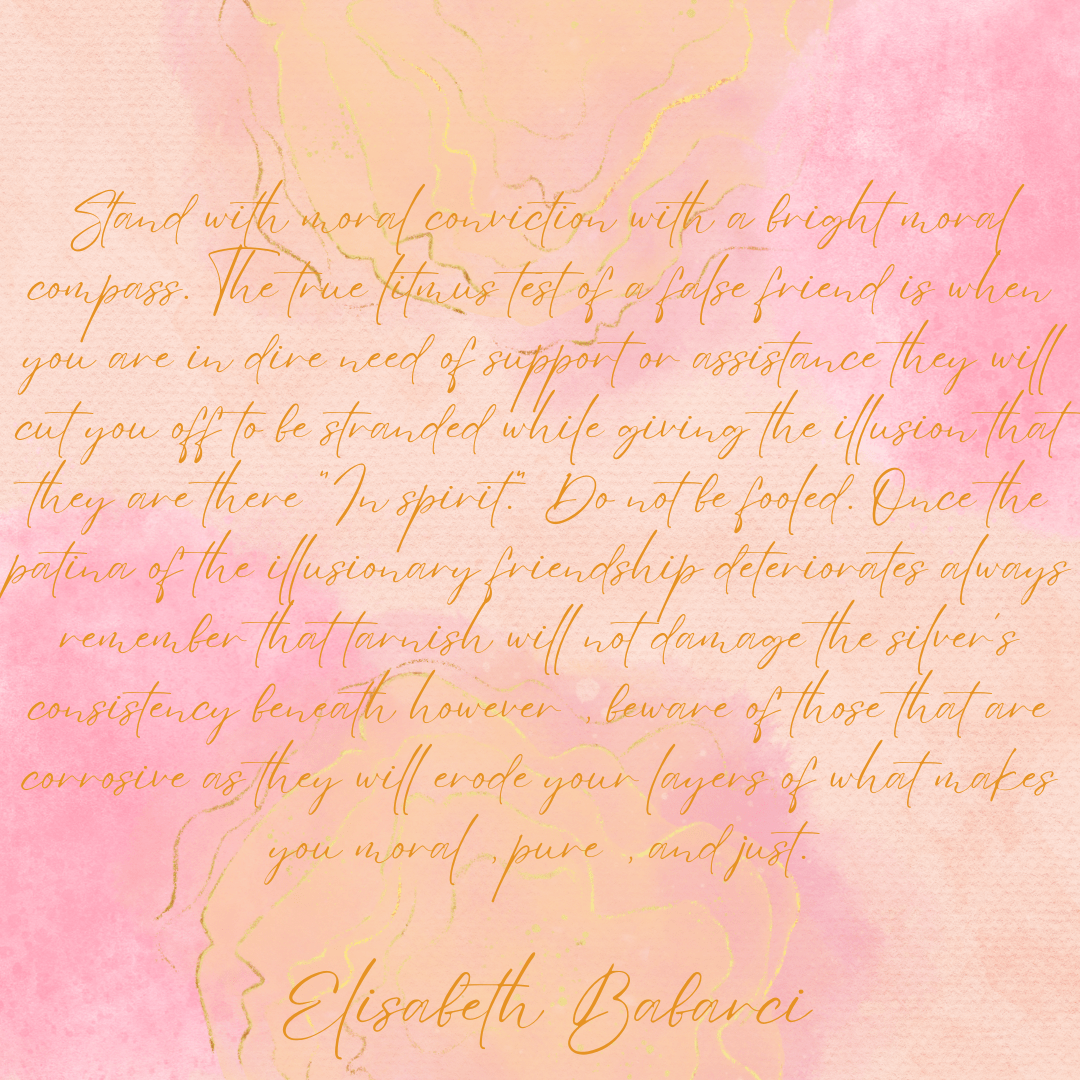 Stand with moral conviction with a bright moral
compass. The true litmus test of a false friend is when
you are in dire need of support or assistance they will
cut you off to be stranded while giving the illusion that
they are there "In spirit." Do not be fooled. Once the
patina of the illusionary friendship deteriorates always
remember that tarnish will not damage the silver's
consistency beneath however , beware of those that are
corrosive as they will erode your layers of what makes
you moral , pure , and just.
Elisabeth Babarci